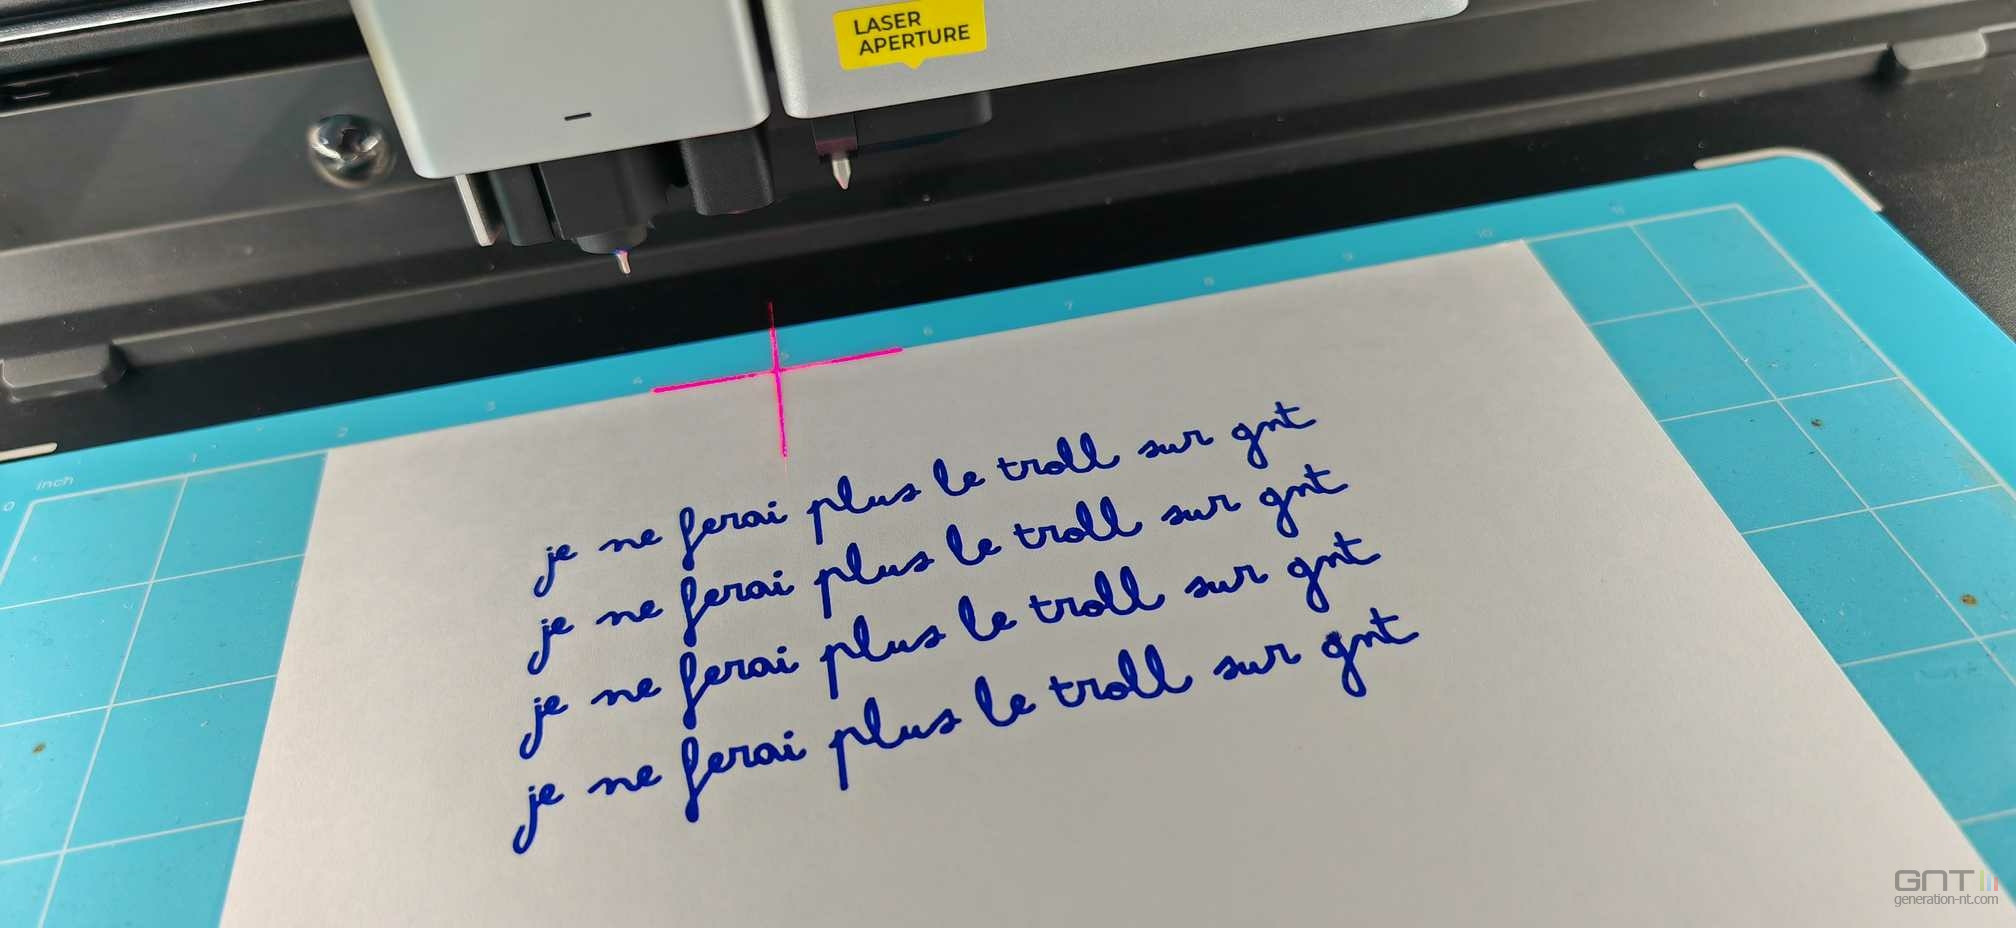 LASER
APERTURE
0 inch 1 2 3 4 5 6 7 8 9 10 11
je ne ferai plus le troll sur gnt
je ne ferai plus le troll sur gnt
je ne ferai plus le troll sur gnt
je ne ferai plus le troll sur gnt
GNT
generation-nt.com